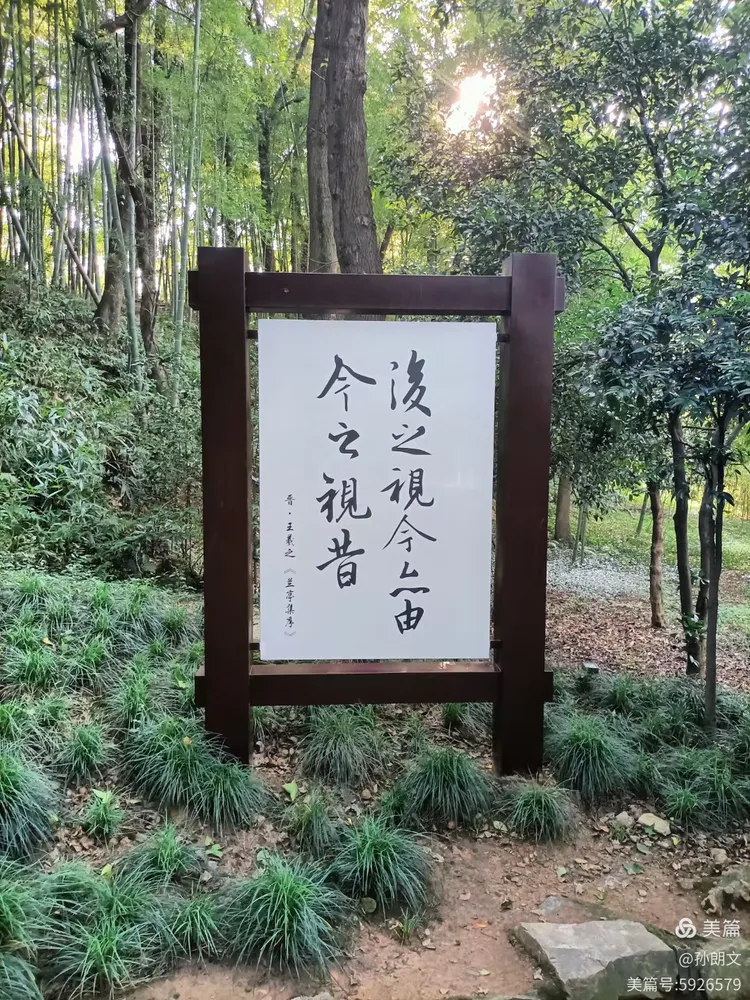 後之視今亦由
今之視昔
晋·王羲之《兰亭集序》
美篇
@孙朗文
美篇号:5926579